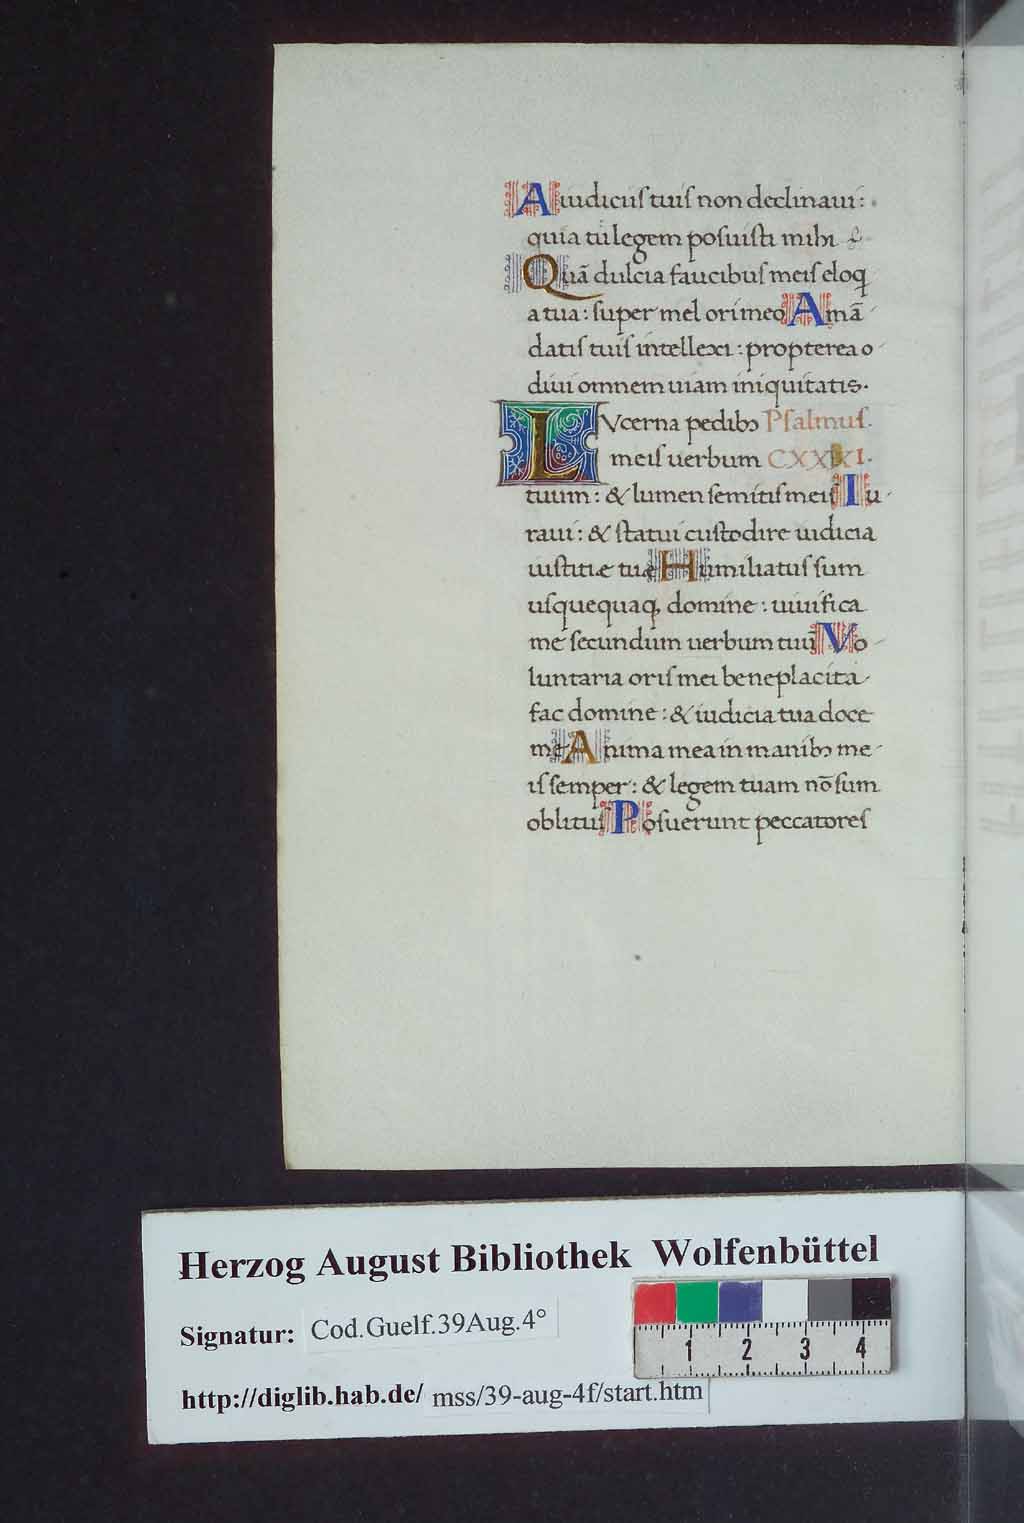 A iudiciis tuis non declinaui:
quia tu legem posuisti mihi
Quā dulcia faucibus meis eloq
a tua: super mel ori meo Amā
datis tuis intellexi: propterea o
diui omnem uiam iniquitatis.
LVcerna pedibꝫ Psalmus.
meis uerbum
tuum: & lumen semitis meis Iu
raui: & statui custodire iudicia
iustitiæ tuæ Humiliatus sum
usquequaqꝫ domine: uiuifica
me secundum uerbum tuū Vo
luntaria oris mei beneplacita
fac domine: & iudicia tua doce
me Anima mea in manibꝫ me
is semper: & legem tuam nō sum
oblitus Posuerunt peccatores
Herzog August Bibliothek Wolfenbüttel
Signatur: Cod.Guelf.39Aug.4°
http://diglib.hab.de/ mss/39-aug-4f/start.htm
1 2 3 4